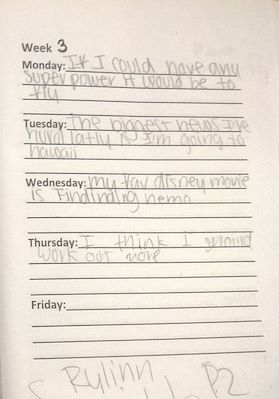 Week 3
Monday: If I could have any
super power it would be to
fly
Tuesday: The biggest news I've
hurd latly is I'm going to
hawaii
Wednesday: my fav disney movie
is Findinding nemo
Thursday: I think I should
work out more
Friday:
Rylinn P2